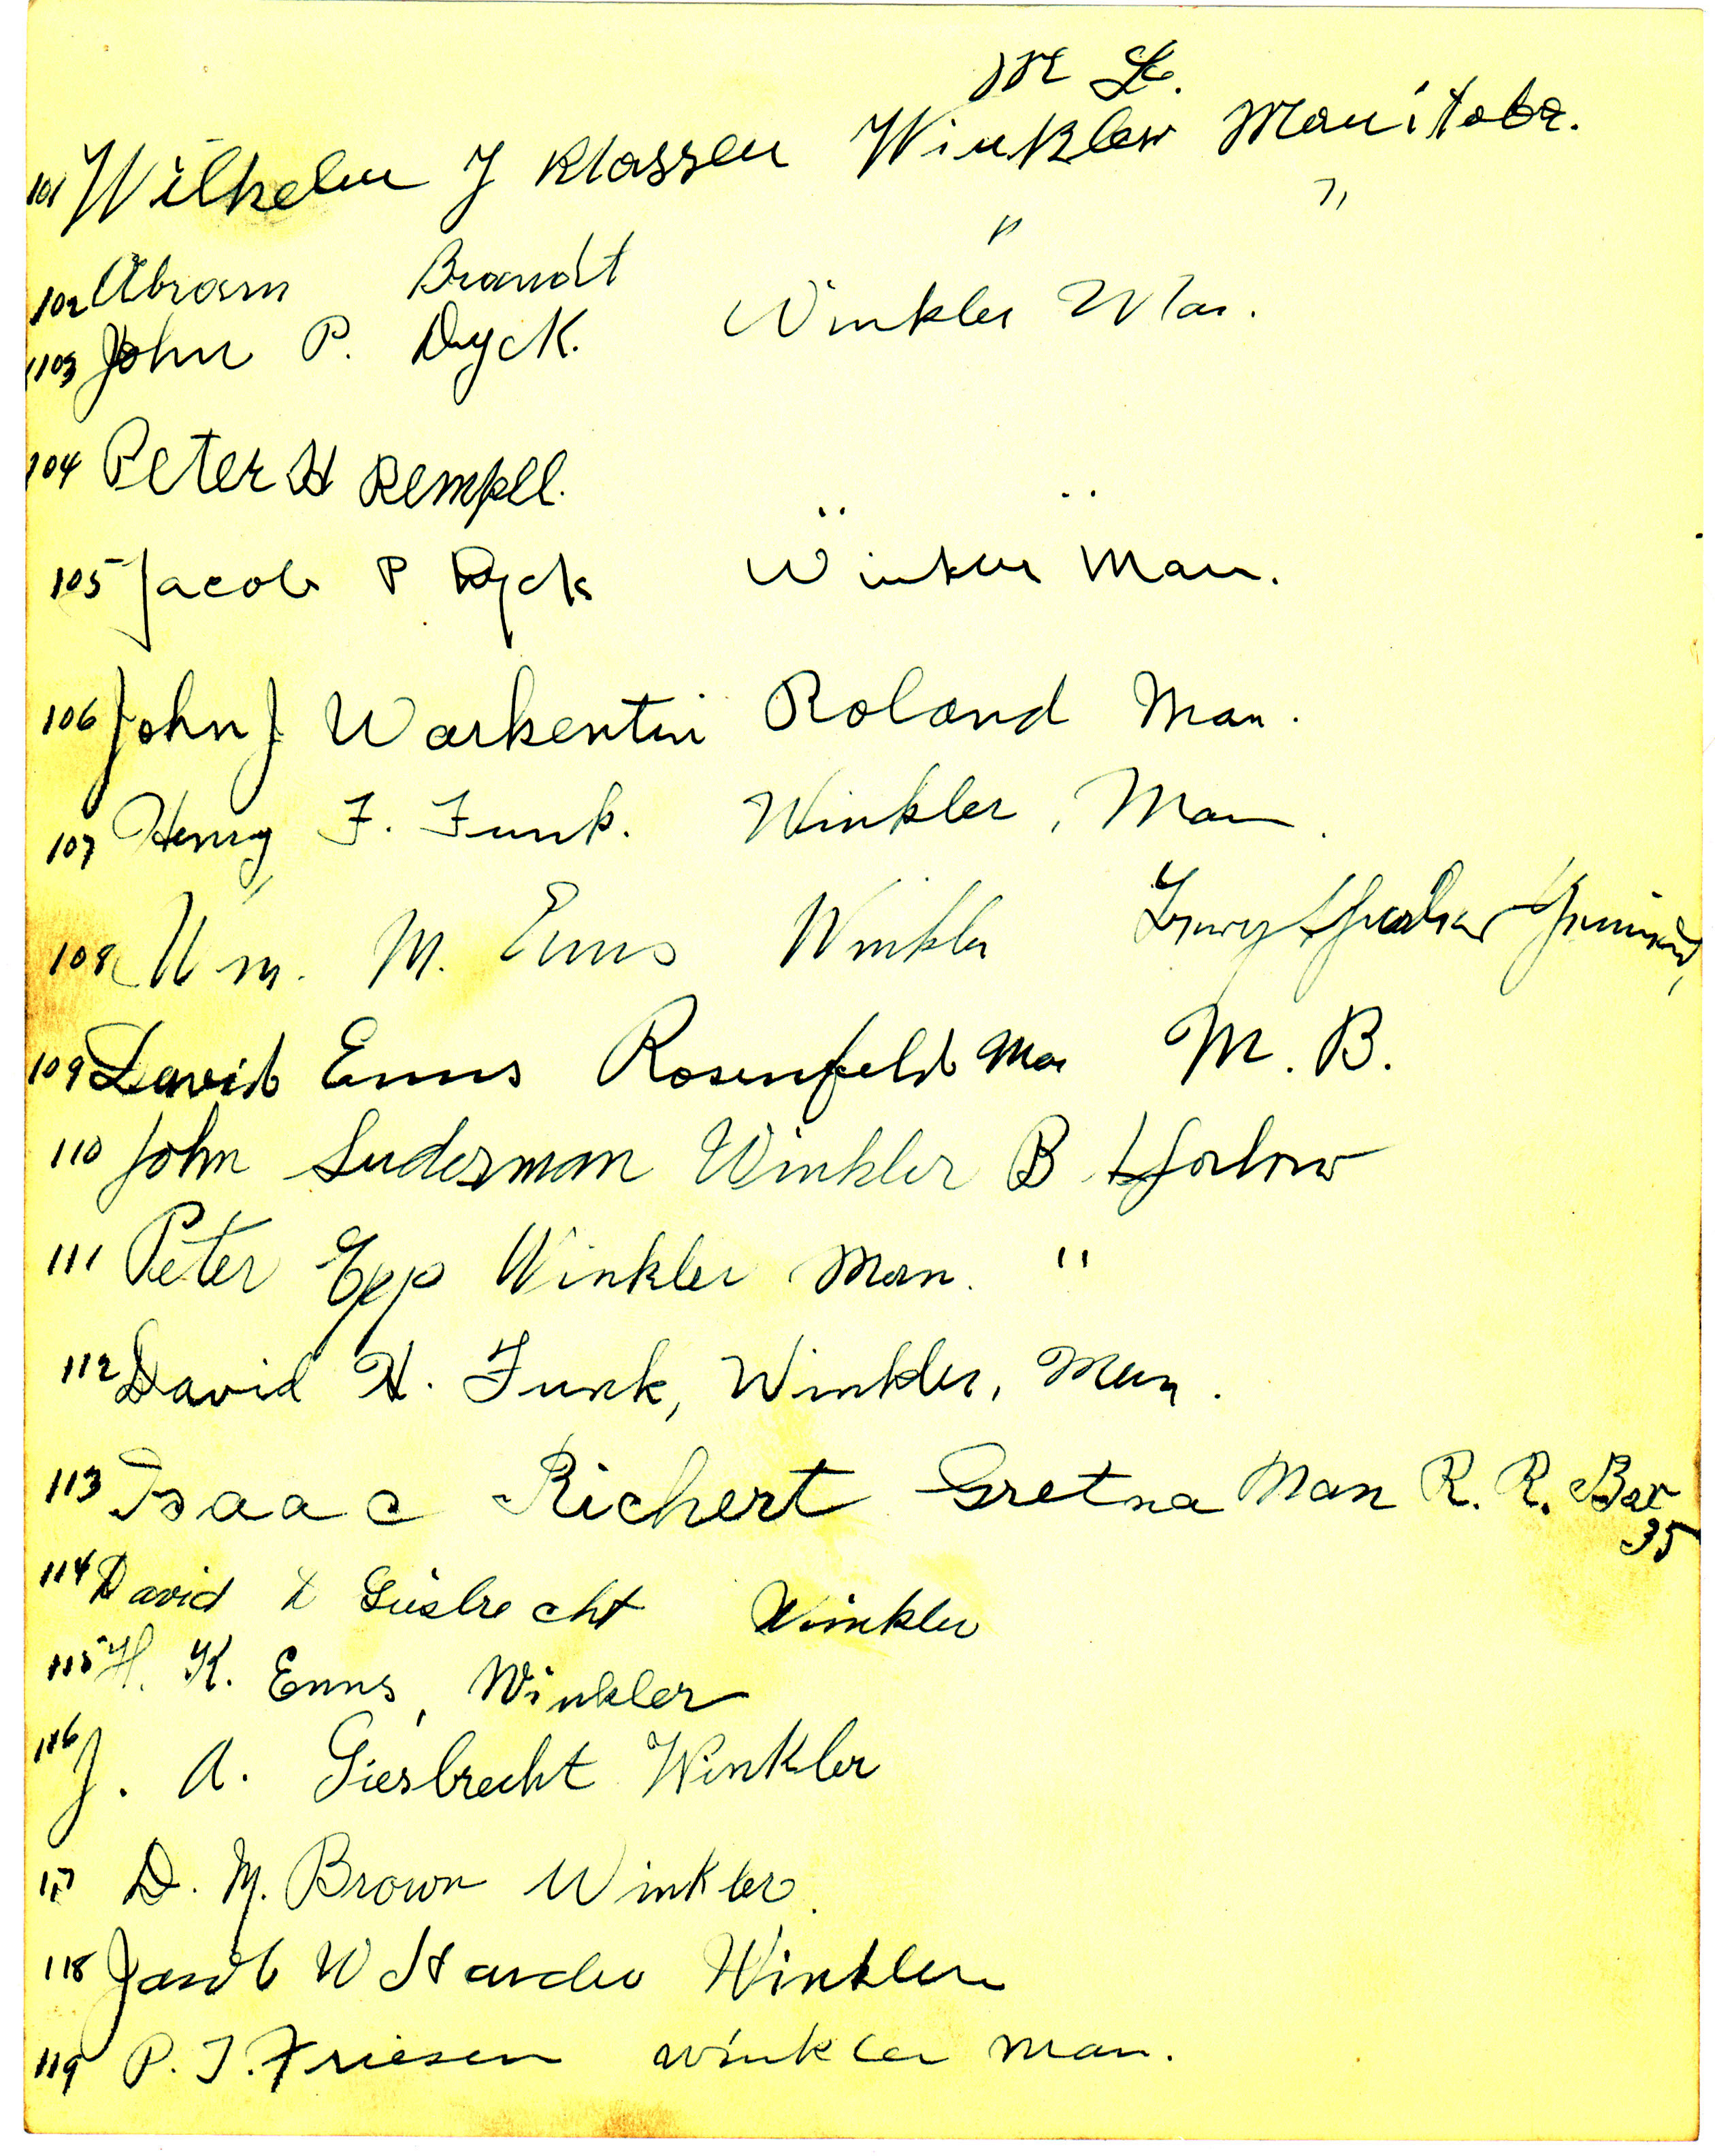 101 Wilhelm J Klassen Winkler Manitoba.
102 Abram Brandt " "
103 John P. Dyck. Winkler Man.
104 Peter H Rempel. " "
105 Jacob P Dyck Winkler Man.
106 John J Warkentin Roland Man.
107 Henry F. Funk. Winkler, Man.
108 Wm. M. Enns Winkler
109 David Enns Rosenfeld Man M. B.
110 John Suderman Winkler B
111 Peter Epp Winkler Man. "
112 David H. Funk, Winkler, Man.
113 Isaac Richert Gretna Man R. R. Box
35
114 David Giesbrecht Winkler
115 H. K. Enns, Winkler
116 J. A. Giesbrecht Winkler
117 D. M. Brown Winkler.
118 Jacob W Harder Winkler
119 P. J. Friesen Winkler Man.